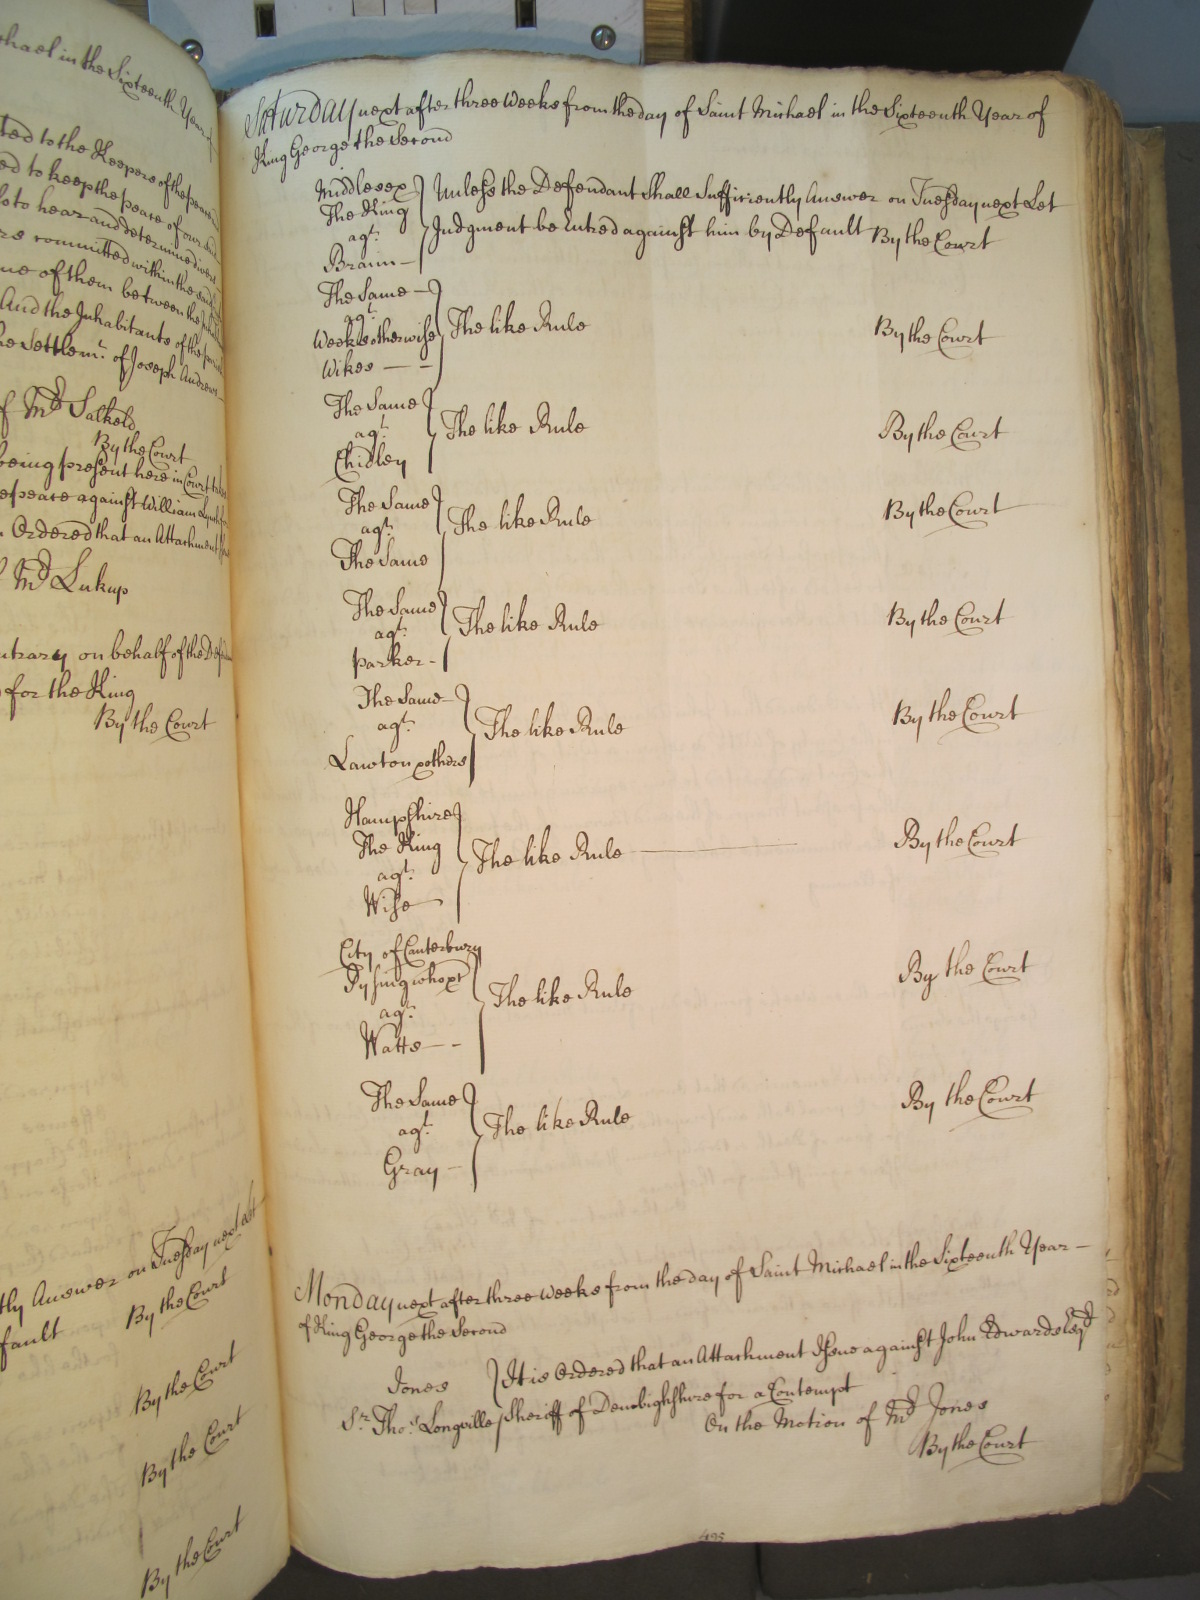 hael in the Sixteenth Year of
ted to the Keepers of the peace
ed to keep the peace of our
to hear and determine divers
re committed within the said
ue of them between the
And the Inhabitants of the
he Settlemt. of Joseph Andrews
of Mr Salkeld
By the Court
being present here in Court
peace against William
Ordered that an Attachment
Mr Lukup
ntrary on behalf of the Def
for the King
By the Court
tly Answer on Tuesday next Let
fault By the Court
By the Court
By the Court
By the Court
Saturday next after three Weeks from the day of Saint Michael in the Sixteenth Year of
King George the Second
Middlesex
The King
agt.
Brain
Unless the Defendant Shall Sufficiently Answer on Tuesday next Let
Judgment be Entred against him by Default By the Court
The Same
agt.
Weeks otherwise
Wikes
The like Rule By the Court
The Same
agt.
Chidley
The like Rule By the Court
The Same
agt.
The Same
The like Rule By the Court
The Same
agt.
parker
The like Rule By the Court
The Same
agt.
Lawton & others
The like Rule By the Court
Hampshire
The King
agt.
Wise
The like Rule By the Court
City of Canterbury
agt.
Watts
The like Rule By the Court
The Same
agt.
Gray
The like Rule By the Court
Monday next after three Weeks from the day of Saint Michael in the Sixteenth Year
of King George the Second
Jones
Sr. Thos. Longville
It is Ordered that an Attachment Issue against John Edwards Esqr
Sheriff of Denbighshire for a Contempt
On the Motion of Mr Jones
By the Court
495